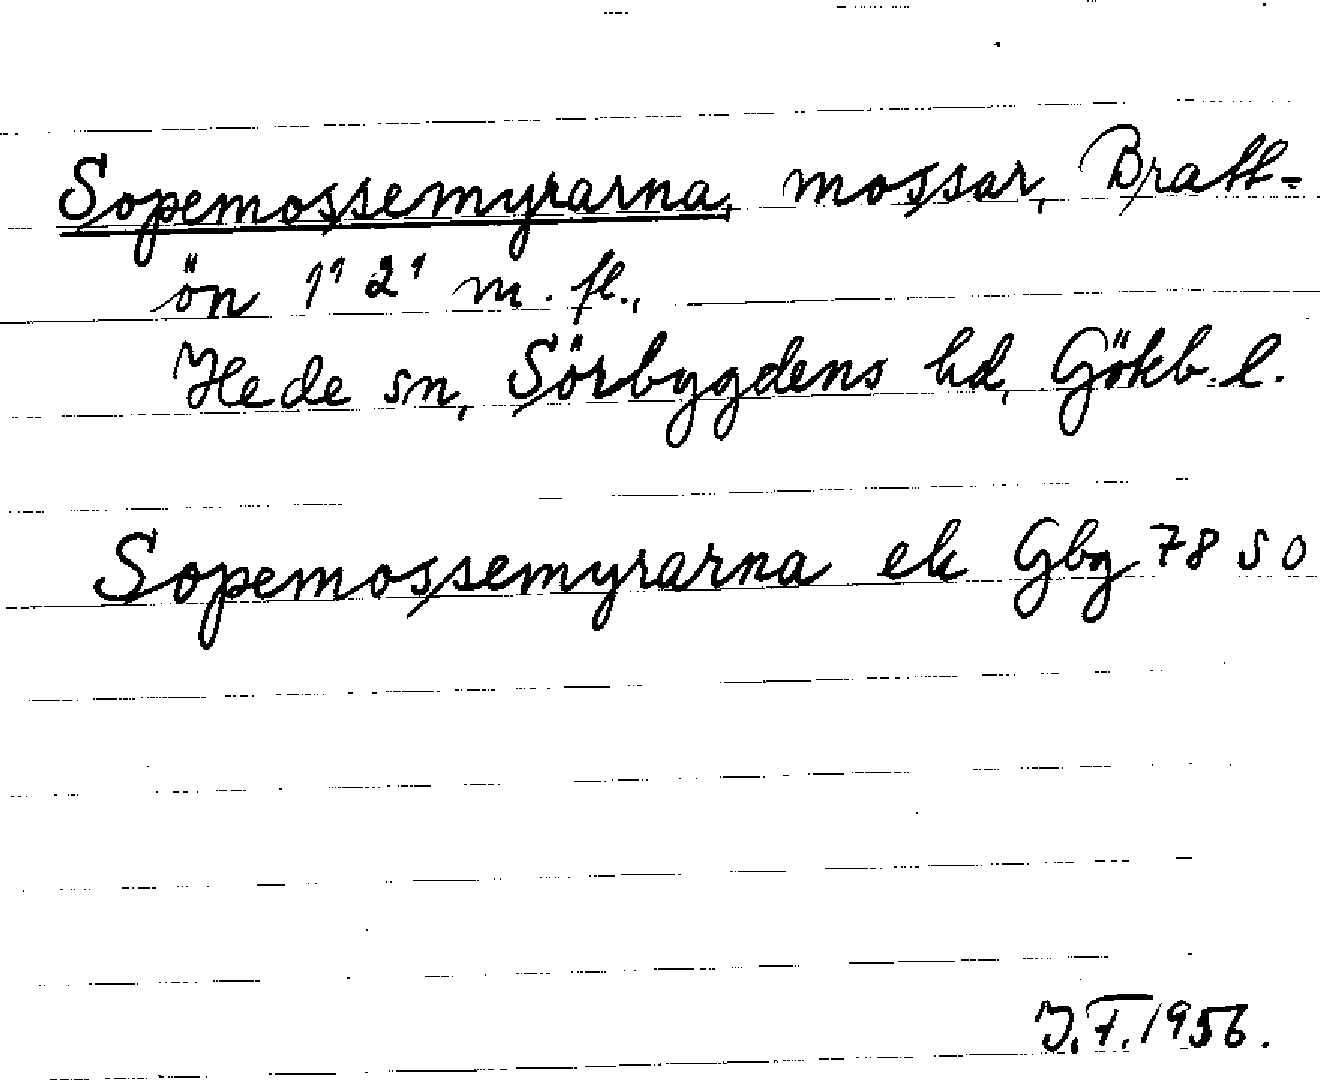 Sopemossemyrarna, mossar, Bratt-
ön 1¹ 2¹ m. fl.,
Hede sn, Sörbygdens hd, Gökb. l.
Sopemossemyrarna ek Gbg 78 50
J.F. 1956.